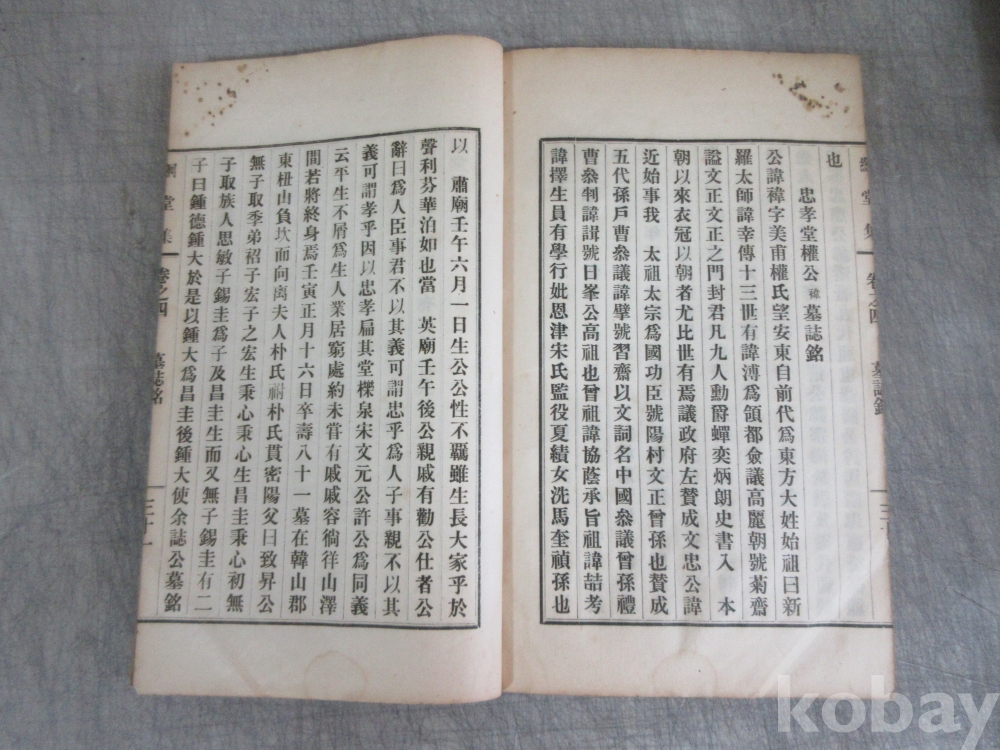 堂集 卷之四 墓誌銘
也
忠孝堂權公 禕 墓誌銘
公諱禕字美甫權氏望安東自前代爲東方大姓始祖曰新
羅太師諱幸傳十三世有諱溥爲領都僉議高麗朝號菊齋
謚文正文正之門封君凡九人勳爵蟬奕炳朗史書入 本
朝以來衣冠以朝者尤比世有焉議政府左贊成文忠公諱
近始事我 太祖太宗爲國功臣號陽村文正曾孫也贊成
五代孫戶曹叅議諱擘號習齋以文詞名中國叅議曾孫禮
曹叅判諱諿號日峯公高祖也曾祖諱協蔭承旨祖諱喆考
諱擇生員有學行妣恩津宋氏監役夏績女洗馬奎禎孫也
以 肅廟壬午六月一日生公公性不羈雖生長大家乎於
聲利芬華泊如也當 英廟壬午後公親戚有勸公仕者公
辭曰爲人臣事君不以其義可謂忠乎爲人子事親不以其
義可謂孝乎因以忠孝扁其堂櫟泉宋文元公許公爲同義
云平生不屑爲生人業居窮處約未甞有戚戚容徜徉山澤
間若將終身焉壬寅正月十六日卒壽八十一墓在韓山郡
東杻山負坎而向离夫人朴氏祔朴氏貫密陽父曰致昇公
無子取季弟祒子宏子之宏生秉心秉心生昌圭秉心初無
子取族人思敏子錫圭爲子及昌圭生而又無子錫圭有二
子曰鍾德鍾大於是以鍾大爲昌圭後鍾大使余誌公墓銘
堂集 卷之四 墓誌銘 三十一
kobay